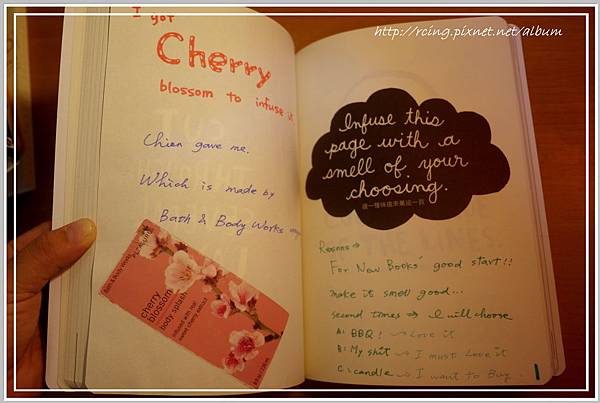 http://rcing.pixnet.net/album
I got
Cherry
blossom to infuse it
Chien gave me.
Which is made by
Bath & Body Works
Bath & Body Works
cherry
blossom
body splash
infused with our
sweet cherry extract
Infuse this
page with a
smell of your
choosing.
選一種味道來薰這一頁
Reasons →
For New Books' good start!!
make it smell good...
second times → I will choose
A: BBQ! → Love it
B: My shit → I must Love it
C: candle → I want to Buy.